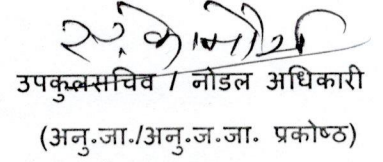 उपकुलसचिव / नोडल अधिकारी
(अनु.जा./अनु.ज.जा. प्रकोष्ठ)